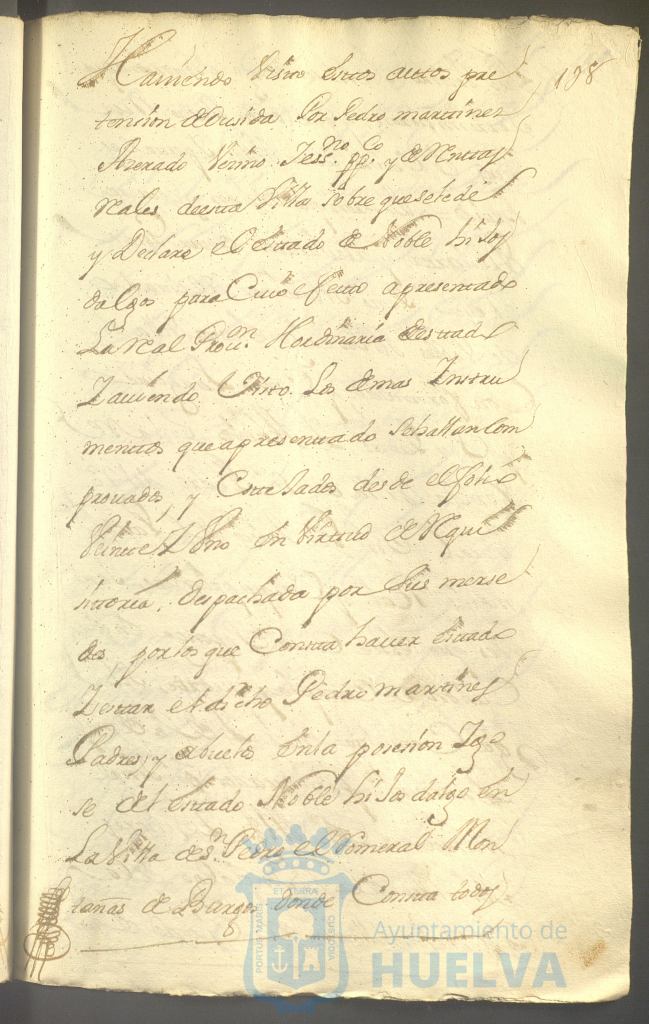 198
Haviendo Visto Estos autos pre
tencion deducida Por Pedro martinez
Verino Tess.no pp.co y de Rentas
Reales de esta Villa sobre que se le de
y Declare el Estado de Noble hijos
dalgos para Cuio efecto a presentado
La real Provi.on Hordinaria de estado
Y auiendo Visto Los demas Instru
mentos que a presentado se hallan Com
prouados, y Cotexados desde el folio
Veinte Y Vno en Virtud de Requi
sitoria, despachada por sus merse
des, por los que Consta hauer estado
Y estar el dicho Pedro martines
Padres, y abuelos en la posesion Y go
se del estado Noble hijos dalgo en
La Villa de S.n Pedro el Romeral Mon
tañas de Burgos donde Consta todos
Ayuntamiento de
HUELVA
ET TERRÆ
PORTUS MARIS
CUSTODIA